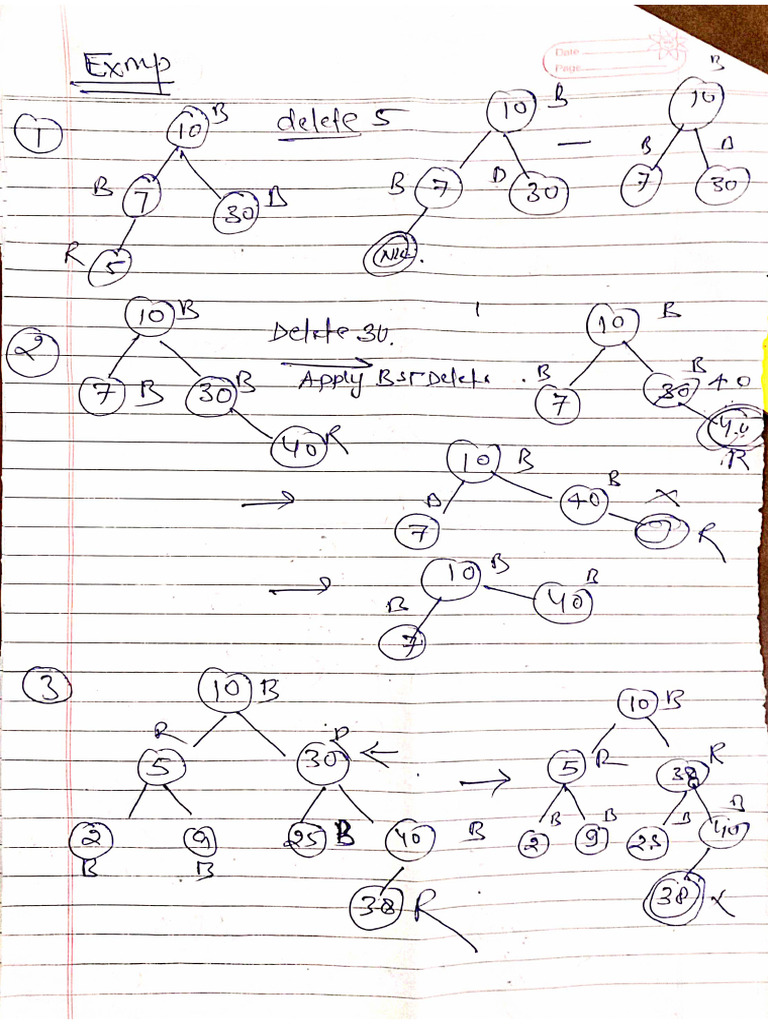 Exmp
Date
Page
1
10 B delete 5 10 B 10 B
B 7 30 B B 7 30 7 B 30
R 5 NIL
2
10 B Delete 30. 10 B
7 B 30 B Apply BST Delete B 7 30 B 40
40 R 40 R
10 B
7 40 B X
R
10 B
B 7 40 B
3 10 B 10 B
R 5 30 5 R 38 R
2 B 9 B 25 B 40 B 2 B 9 B 25 B 40 B
38 R 38